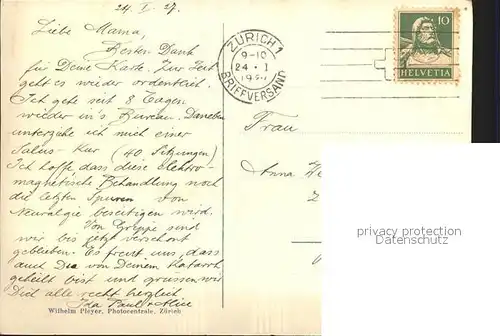 24. I. 27.
Liebe Mama,
Besten Dank
für Deine Karte. Zur Zeit
geht es wieder ordentlich.
Ich gehe seit 8 Tagen
wieder in's Bureau. Daneben
unterziehe ich mich einer
Salus-Kur (40 Sitzungen)
Ich hoffe, dass diese elektro-
magnetische Behandlung noch
die letzten Spuren von
Neuralgie beseitigen wird.
Von Grippe sind
wir bis jetzt verschont
geblieben. Es freut uns, dass
auch Du von Deinem Katarrh
geheilt bist und grüssen wir
Dich alle recht herzlich
Ida Paul + Alice
Wilhelm Pleyer, Photocentrale, Zürich
ZÜRICH 1
9-10
24. I
BRIEFVERSAND
10
HELVETIA
Frau
Anna
privacy protection
Datenschutz